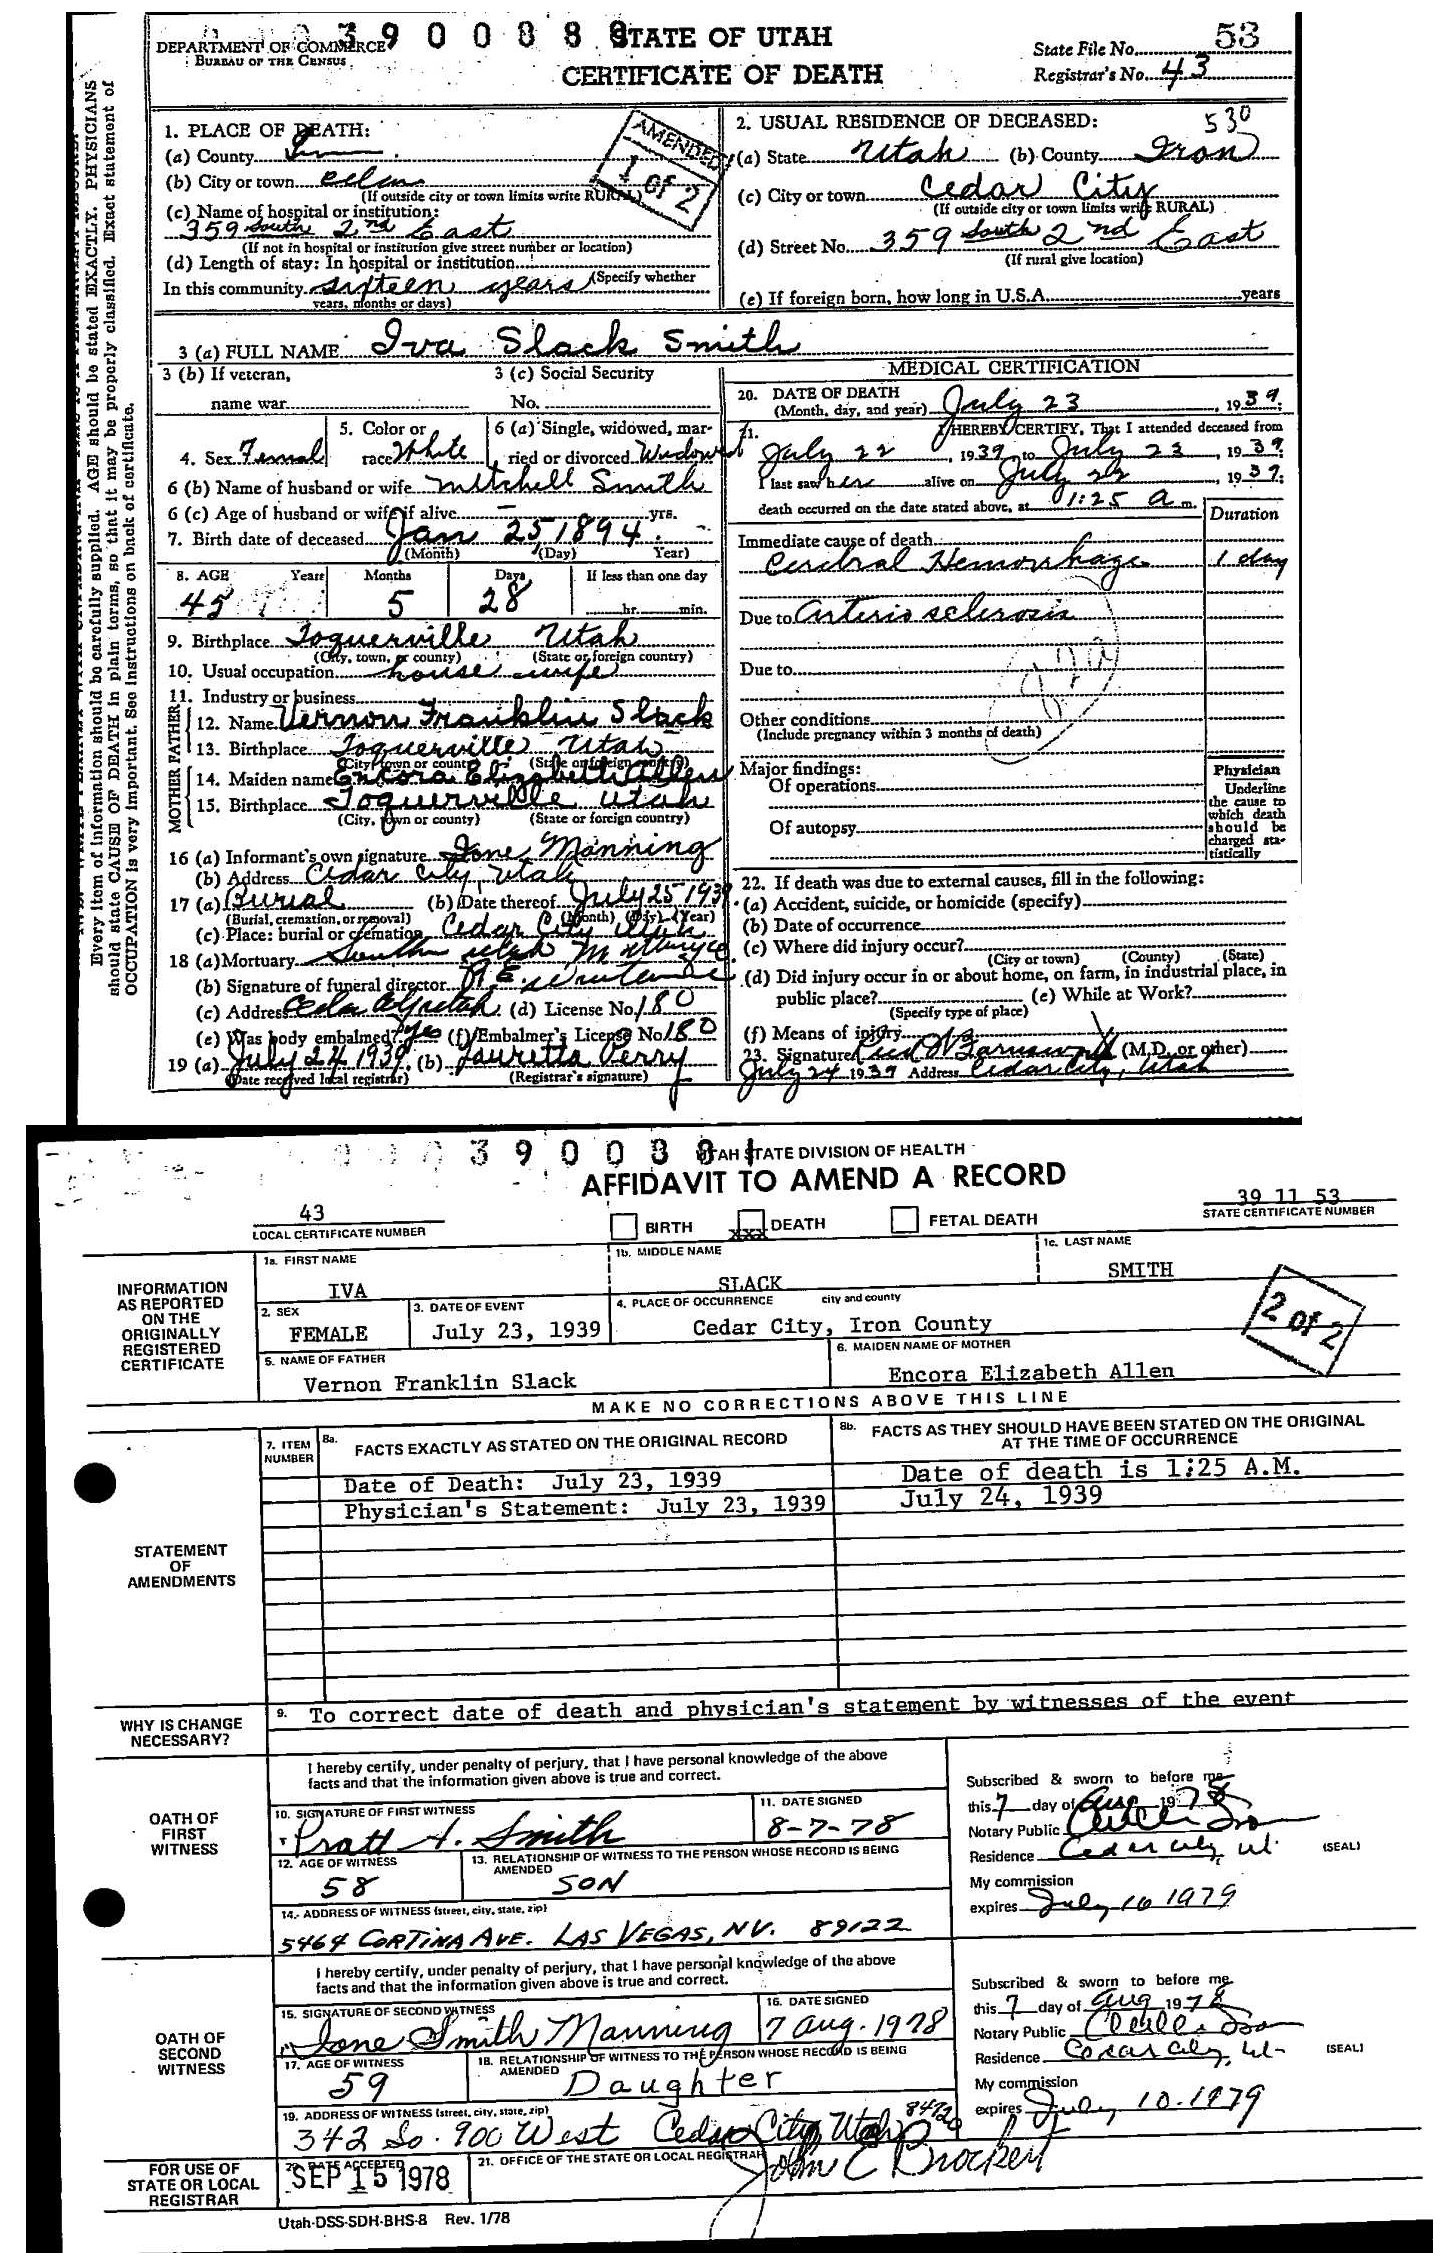 3 9 0 0 8 8
STATE OF UTAH
CERTIFICATE OF DEATH
DEPARTMENT OF COMMERCE
BUREAU OF THE CENSUS
State File No. 53
Registrar's No. 43
Every item of information should be carefully supplied. AGE should be stated EXACTLY. PHYSICIANS
should state CAUSE OF DEATH in plain terms, so that it may be properly classified. Exact statement of
OCCUPATION is very important. See instructions on back of certificate.
AMENDED
1 of 2
1. PLACE OF DEATH:
(a) County
(b) City or town
(If outside city or town limits write RURAL)
(c) Name of hospital or institution:
359 South 2nd East
(If not in hospital or institution give street number or location)
(d) Length of stay: In hospital or institution
(Specify whether
In this community sixteen years
years, months or days)
2. USUAL RESIDENCE OF DECEASED: 530
(a) State Utah (b) County Iron
(c) City or town Cedar City
(If outside city or town limits write RURAL)
(d) Street No. 359 South 2nd East
(If rural give location)
(e) If foreign born, how long in U.S.A. years
3 (a) FULL NAME Iva Slack Smith
3 (b) If veteran,
name war
3 (c) Social Security
No.
4. Sex Femal
5. Color or
race White
6 (a) Single, widowed, mar-
ried or divorced Widowed
6 (b) Name of husband or wife Mitchell Smith
6 (c) Age of husband or wife if alive — yrs.
7. Birth date of deceased Jan 25, 1894.
(Month) (Day) Year)
8. AGE Years Months Days If less than one day
45 5 28 hr. min.
9. Birthplace Toquerville Utah
(City, town, or county) (State or foreign country)
10. Usual occupation house wife
11. Industry or business
FATHER
12. Name Vernon Franklin Slack
13. Birthplace Toquerville Utah
(City, town or county) (State or foreign country)
MOTHER
14. Maiden name Encora Elizabeth Allen
15. Birthplace Toquerville Utah
(City, town or county) (State or foreign country)
16 (a) Informant's own signature Ione Manning
(b) Address Cedar City, Utah
17 (a) Burial (b) Date thereof July 25 1939
(Burial, cremation, or removal) (Month) (Day) (Year)
(c) Place: burial or cremation Cedar City Utah
18 (a) Mortuary Southern Utah
(b) Signature of funeral director
(c) Address (d) License No. 180
(e) Was body embalmed? yes (f) Embalmer's License No. 180
19 (a) July 24 1939. (b) Lauretta Perry
(Date received local registrar) (Registrar's signature)
MEDICAL CERTIFICATION
20. DATE OF DEATH
(Month, day, and year) July 23, 1939.
21. I HEREBY CERTIFY, That I attended deceased from
July 22, 1939 to July 23, 1939.
I last saw her alive on July 22, 1939.
death occurred on the date stated above, at 1:25 a m.
Duration
Immediate cause of death
Cerebral Hemorrhage 1 day
Due to Arterio sclerosis
Due to
Other conditions
(Include pregnancy within 3 months of death)
Major findings:
Of operations
Of autopsy
Physician
Underline
the cause to
which death
should be
charged sta-
tistically
22. If death was due to external causes, fill in the following:
(a) Accident, suicide, or homicide (specify)
(b) Date of occurrence
(c) Where did injury occur?
(City or town) (County) (State)
(d) Did injury occur in or about home, on farm, in industrial place, in
public place? (e) While at Work?
(Specify type of place)
(f) Means of injury
23. Signature (M.D. or other)
July 24 1939 Address Cedar City, Utah
3 9 0 0 8 8 1
UTAH STATE DIVISION OF HEALTH
AFFIDAVIT TO AMEND A RECORD
43
LOCAL CERTIFICATE NUMBER
BIRTH XXX DEATH FETAL DEATH
39 11 53
STATE CERTIFICATE NUMBER
2 of 2
INFORMATION
AS REPORTED
ON THE
ORIGINALLY
REGISTERED
CERTIFICATE
1a. FIRST NAME 1b. MIDDLE NAME 1c. LAST NAME
IVA SLACK SMITH
2. SEX 3. DATE OF EVENT 4. PLACE OF OCCURRENCE city and county
FEMALE July 23, 1939 Cedar City, Iron County
5. NAME OF FATHER 6. MAIDEN NAME OF MOTHER
Vernon Franklin Slack Encora Elizabeth Allen
MAKE NO CORRECTIONS ABOVE THIS LINE
STATEMENT
OF
AMENDMENTS
7. ITEM
NUMBER
8a. FACTS EXACTLY AS STATED ON THE ORIGINAL RECORD
8b. FACTS AS THEY SHOULD HAVE BEEN STATED ON THE ORIGINAL
AT THE TIME OF OCCURRENCE
Date of Death: July 23, 1939 Date of death is 1:25 A.M.
Physician's Statement: July 23, 1939 July 24, 1939
WHY IS CHANGE
NECESSARY?
9. To correct date of death and physician's statement by witnesses of the event
OATH OF
FIRST
WITNESS
I hereby certify, under penalty of perjury, that I have personal knowledge of the above
facts and that the information given above is true and correct.
10. SIGNATURE OF FIRST WITNESS 11. DATE SIGNED
Pratt A. Smith 8-7-78
12. AGE OF WITNESS 13. RELATIONSHIP OF WITNESS TO THE PERSON WHOSE RECORD IS BEING
AMENDED
58 SON
14. ADDRESS OF WITNESS (street, city, state, zip)
5464 CORTINA AVE. LAS VEGAS, NV. 89122
Subscribed & sworn to before me
this 7 day of Aug 1978
Notary Public
Residence Cedar City, Ut.
(SEAL)
My commission
expires July 10 1979
OATH OF
SECOND
WITNESS
I hereby certify, under penalty of perjury, that I have personal knowledge of the above
facts and that the information given above is true and correct.
15. SIGNATURE OF SECOND WITNESS 16. DATE SIGNED
Ione Smith Manning 7 Aug. 1978
17. AGE OF WITNESS 18. RELATIONSHIP OF WITNESS TO THE PERSON WHOSE RECORD IS BEING
AMENDED
59 Daughter
19. ADDRESS OF WITNESS (street, city, state, zip)
342 So. 900 West Cedar City Utah 84720
Subscribed & sworn to before me
this 7 day of Aug 1978
Notary Public
Residence Cedar City, Ut-
(SEAL)
My commission
expires July 10. 1979
FOR USE OF
STATE OR LOCAL
REGISTRAR
20. DATE ACCEPTED
SEP 15 1978
21. OFFICE OF THE STATE OR LOCAL REGISTRAR
John E Brockert
Utah-DSS-SDH-BHS-8 Rev. 1/78